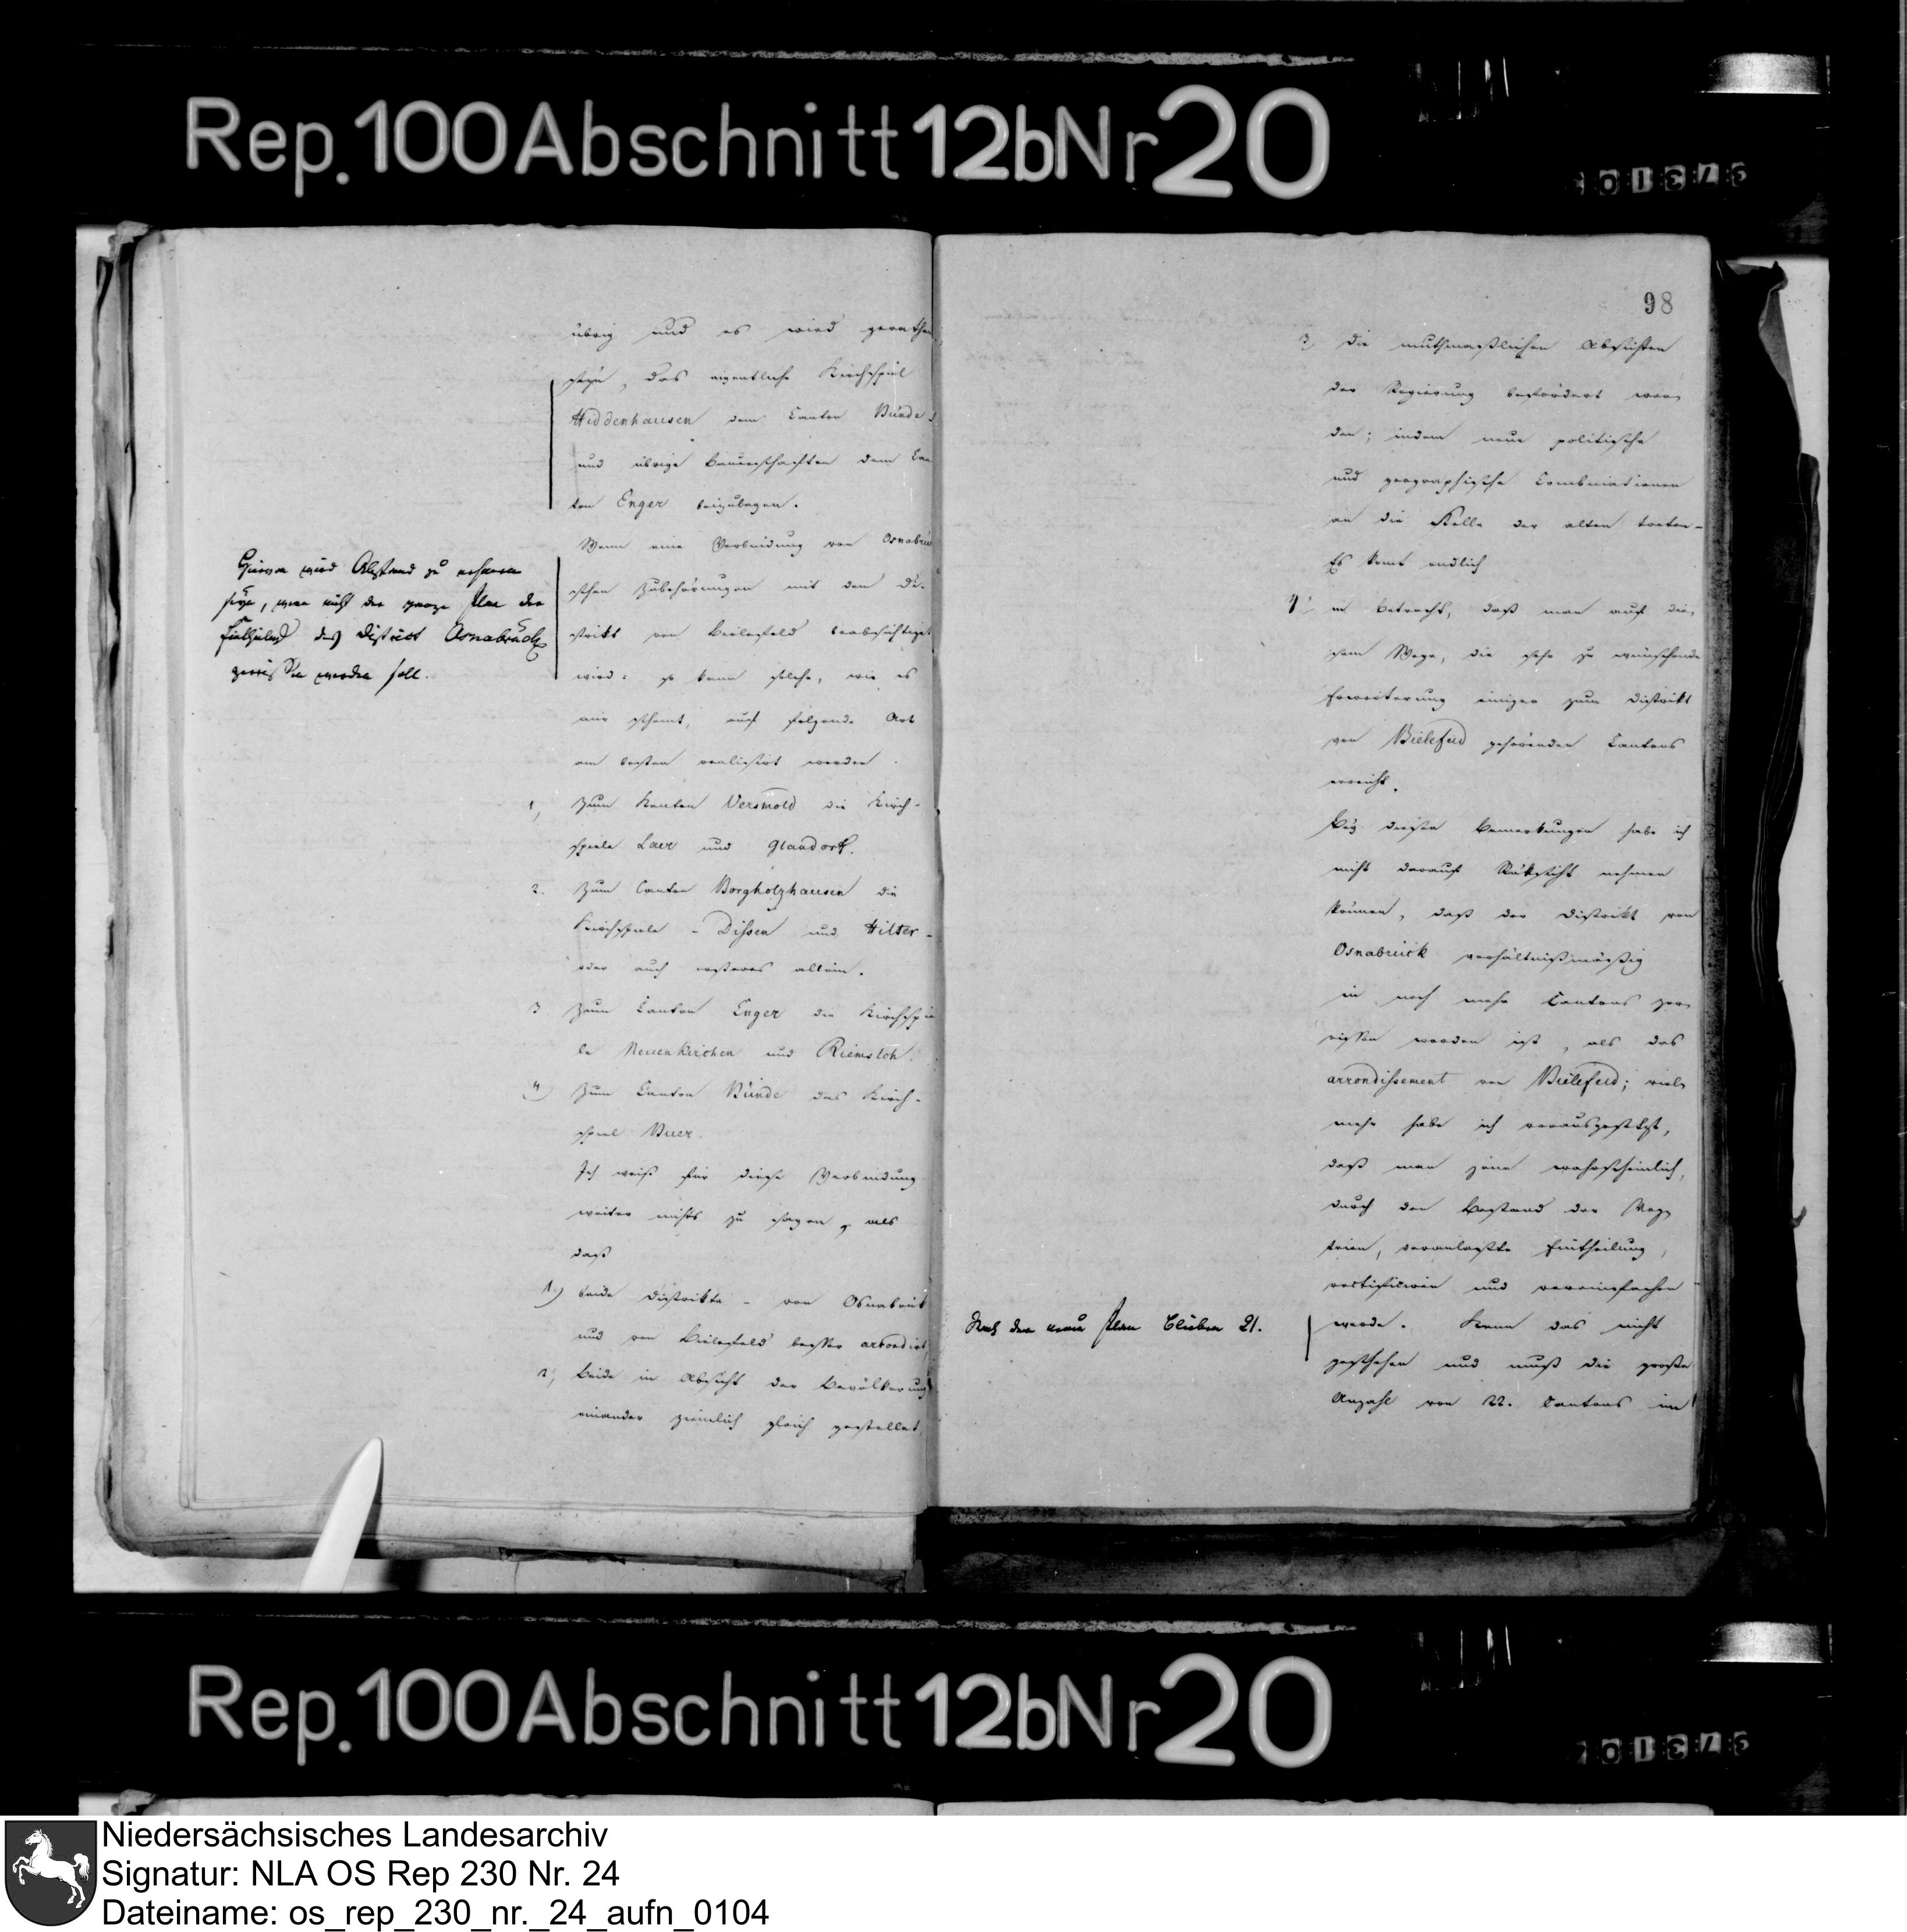 Rep. 100 Abschnitt 12b Nr 20
01375
übrig und es wird gerathen
seyn, das eigentliche Kirchspiel
Hiddenhausen dem Canton Bünde
und übrige Bauerschaften dem Can
ton Enger beizulegen.
Wenn eine Verbindung von Osnabrück
schen Zubehörungen mit dem Di-
strikt von Bielefeld beabsichtiget
wird: so kann solche, wie es
mir scheint, auf folgende Art
am besten realisirt werden.
1, Zum Kanton Versmold die Kirch-
spiele Laer und Glandorf.
2. Zum Canton Borgholzhausen die
Kirchspiele - Dissen und Hilter -
oder auch ersteres allein.
3 Zum Canton Enger die Kirchspie
le Neuenkirchen und Riemsloh.
4) Zum Canton Bünde das Kirch-
spiel Buer.
Ich weiß für diese Verbindung
weiter nichts zu sagen, als
daß
1.) beide Distrikte - von Osnabrük
und von Bielefeld besser arrondirt
2, Beide in Absicht der Bevölkerung
einander ziemlich gleich gestellet
Hievon wird Abstand zu nehmen
seyn, wenn nicht der ganze Plan der
des District Osnabrück
zerrissen werden soll.
98
3, die muthmaßlichen Absichten
der Regierung befördert wer-
den; indem neue politische
und geographische Combinationen
an die Stelle der alten treten -
Es komt endlich
4 in Betracht, daß man auf die-
sem Wege, die sehr zu wünschende
Erweiterung einiger zum Distrikt
von Bielefeld gehörenden Cantons
erreicht.
Bey diesen Bemerkungen habe ich
nicht darauf Rüksicht nehmen
können, daß der Distrikt von
Osnabrück verhältnißmäßig
in noch mehr Cantons zer-
rissen worden ist, als das
arrondissement von Bielefeld; viel-
mehr habe ich vorausgesetzt,
daß man jene wahrscheinlich,
durch den Bestand der
veranlaßte Eintheilung,
rectificiren und vereinfachen
werde. Kann das nicht
geschehen und muß die große
Anzahl von 22. Cantons im
Nach dem neuen Plan blieben 21.
Rep. 100 Abschnitt 12b Nr 20
01375
Niedersächsisches Landesarchiv
Signatur: NLA OS Rep 230 Nr. 24
Dateiname: os_rep_230_nr._24_aufn_0104